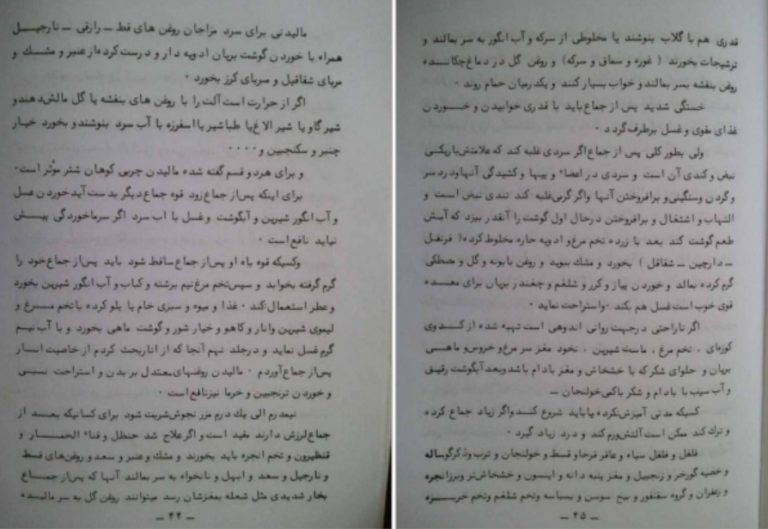 مالیدنی برای سرد مزاجان روغن های قط ــ رازقی ــ نارجیل
همراه با خوردن گوشت بریان ادویه دار و درست کرده از عنبر و مشک و
مربای شقاقیل و مربای کرز بخورد ٠
اگر از حرارت است آلت را با روغن های بنفشه یا گل مالش دهند و
شیر گاو یا شیر الاغ یا طباشیر یا اسفرزه با آب سرد بنوشند و بخورد خیار
چنبر و سکنجبین و ٠٠٠٠
و برای هر دو قسم گفته شده مالیدن چربی کوهان شتر موثر است٠
برای اینکه پس از جماع زود قوه جماع دیگر بدست آید خوردن عسل
و آب انگور شیرین و آبگوشت و غسل با آب سرد اگر سرماخوردگی پیش
نیاید نافع است ٠
وکسیکه قوه باه او پس از جماع ساقط شود باید پس از جماع خود را
گرم گرفته بخوابد و سپس تخم مرغ نیم برشته و کباب و آب انگور شیرین بخورد
و عطر استعمال کند٠ غذا و میوه و سبزی خام یا پلو کرده با تخم مرغ و
لیموی شیرین و انار و کاهو و خیار شور و گوشت ماهی بخورد و با آب نیم
گرم غسل نماید و در جلد نهم آنجا که از انار بحث کردم از خاصیت انار
پس از جماع آوردم ٠ مالیدن روغنهای معتدل بر بدن و استراحت نسبی
و خوردن ترنجبین و خرما نیز نافع است ٠
نیمدرم الی یک درم مزر نجوش شربت شود برای کسانیکه بعد از
جماع لرزش دارند مفید است و اگر علاج شد حنظل و قثاء الحمار و
قنطریون و تخم انجره باید بخورند و مشک و عنبر و سعد و روغن های قسط
و نارجیل و سعد و ابهل و نانخواه به سر بمالند آنها که پس از جماع
بخار شدیدی مثل شعله بمغزشان رسد میتوانند روغن گل به سر مالیده
ــ ۴۴ ــ
قدری هم با گلاب بنوشند یا مخلوطی از سرکه و آب انگور به سر بمالند و
ترشیجات بخورند ( غوره و سماق و سرکه) و روغن گل در دماغ چکانده
روغن بنفشه بسر بمالند و خواب بسیار کنند و یکدرمیان حمام روند ٠
خستگی شدید پس از جماع باید با قدری خوابیدن و خوردن
غذای مقوی و غسل برطرف گردد ٠
ولی بطور کلی پس از جماع اگر سردی غلبه کند که علامتش باریکی
نبض و کندی آن است و سردی در اعضاء و پیها و کشیدگی آنها و درد سر
و گردن و سنگینی و برافروختن آنها و اگر گرمی غلبه کند تندی نبض است و
التهاب و اشتغال و برافروختن در حال اول گوشت را آنقدر بپزد که آبش
طعم گوشت کند بعد با زرده تخم مرغ و ادویه حاره مخلوط کرده( قرنفل
ــ دارچین ــ شقاقل ) بخورد و مشک ببوید و روغن بابونه و گل و مصطکی
گرم کرده بمالد و خوردن پیاز و کرز و شلغم و چغندر بریان برای معده
قوی خوب است غسل هم بکند ٠ و استراحت نماید ٠
اگر ناراحتی در جهت روانی اندوهی است تهیه شده از کندوی
کوزه‌ای ، تخم مرغ ، ماست شیرین ، نخود مغز سر مرغ و خروس و ماهی
بریان و حلوای شکر که با خشخاش و مغز بادام باشد و بعد آبگوشت رقیق
و آب سیب با بادام و شکر با کمی خولنجان ــ
کسیکه مدتی آمیزش نکرده یا باید شروع کند و اگر زیاد جماع کرده
و ترک کند ممکن است آلتش ورم کند و درد زیاد گیرد ٠
فلفل و فلفل سیاه و عاقر قرحا و قسط و خولنجان و ترب و ذکر گوساله
و خصیه گورخر و زنجبیل و مغز پنبه دانه و اینسون و خشخاش تر و برز انجره
و زعفران و گروه سقنقور و بیخ سوسن و بسباسه و تخم شلغم و تخم خربزه
ــ ۴۵ ــ